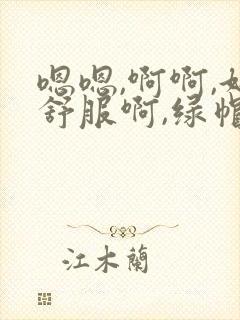 嗯嗯,啊啊,好
舒服啊,绿帽
江木蘭